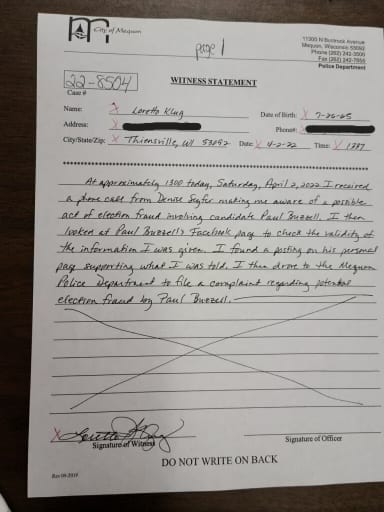 City of Mequon
page 1
11300 N Buntrock Avenue
Mequon, Wisconsin 53092
Phone (262) 242-3500
Fax (262) 242-7655
Police Department
22-8504
Case #
WITNESS STATEMENT
Name: X Loretta Klug Date of Birth: X 7-26-65
Address: X Phone#: X
City/State/Zip: X Thiensville, WI 53092 Date: X 4-2-22 Time: X 1337
At approximately 1300 today, Saturday, April 2, 2022 I received
a phone call from Denise making me aware of a possible
act of election fraud involving candidate Paul Buzzell. I then
looked at Paul Buzzell's Facebook page to check the validity of
the information I was given. I found a posting on his personal
page supporting what I was told. I then drove to the Mequon
Police Department to file a complaint regarding potential
election fraud by Paul Buzzell.
X
Signature of Witness Signature of Officer
DO NOT WRITE ON BACK
Rev 09-2019